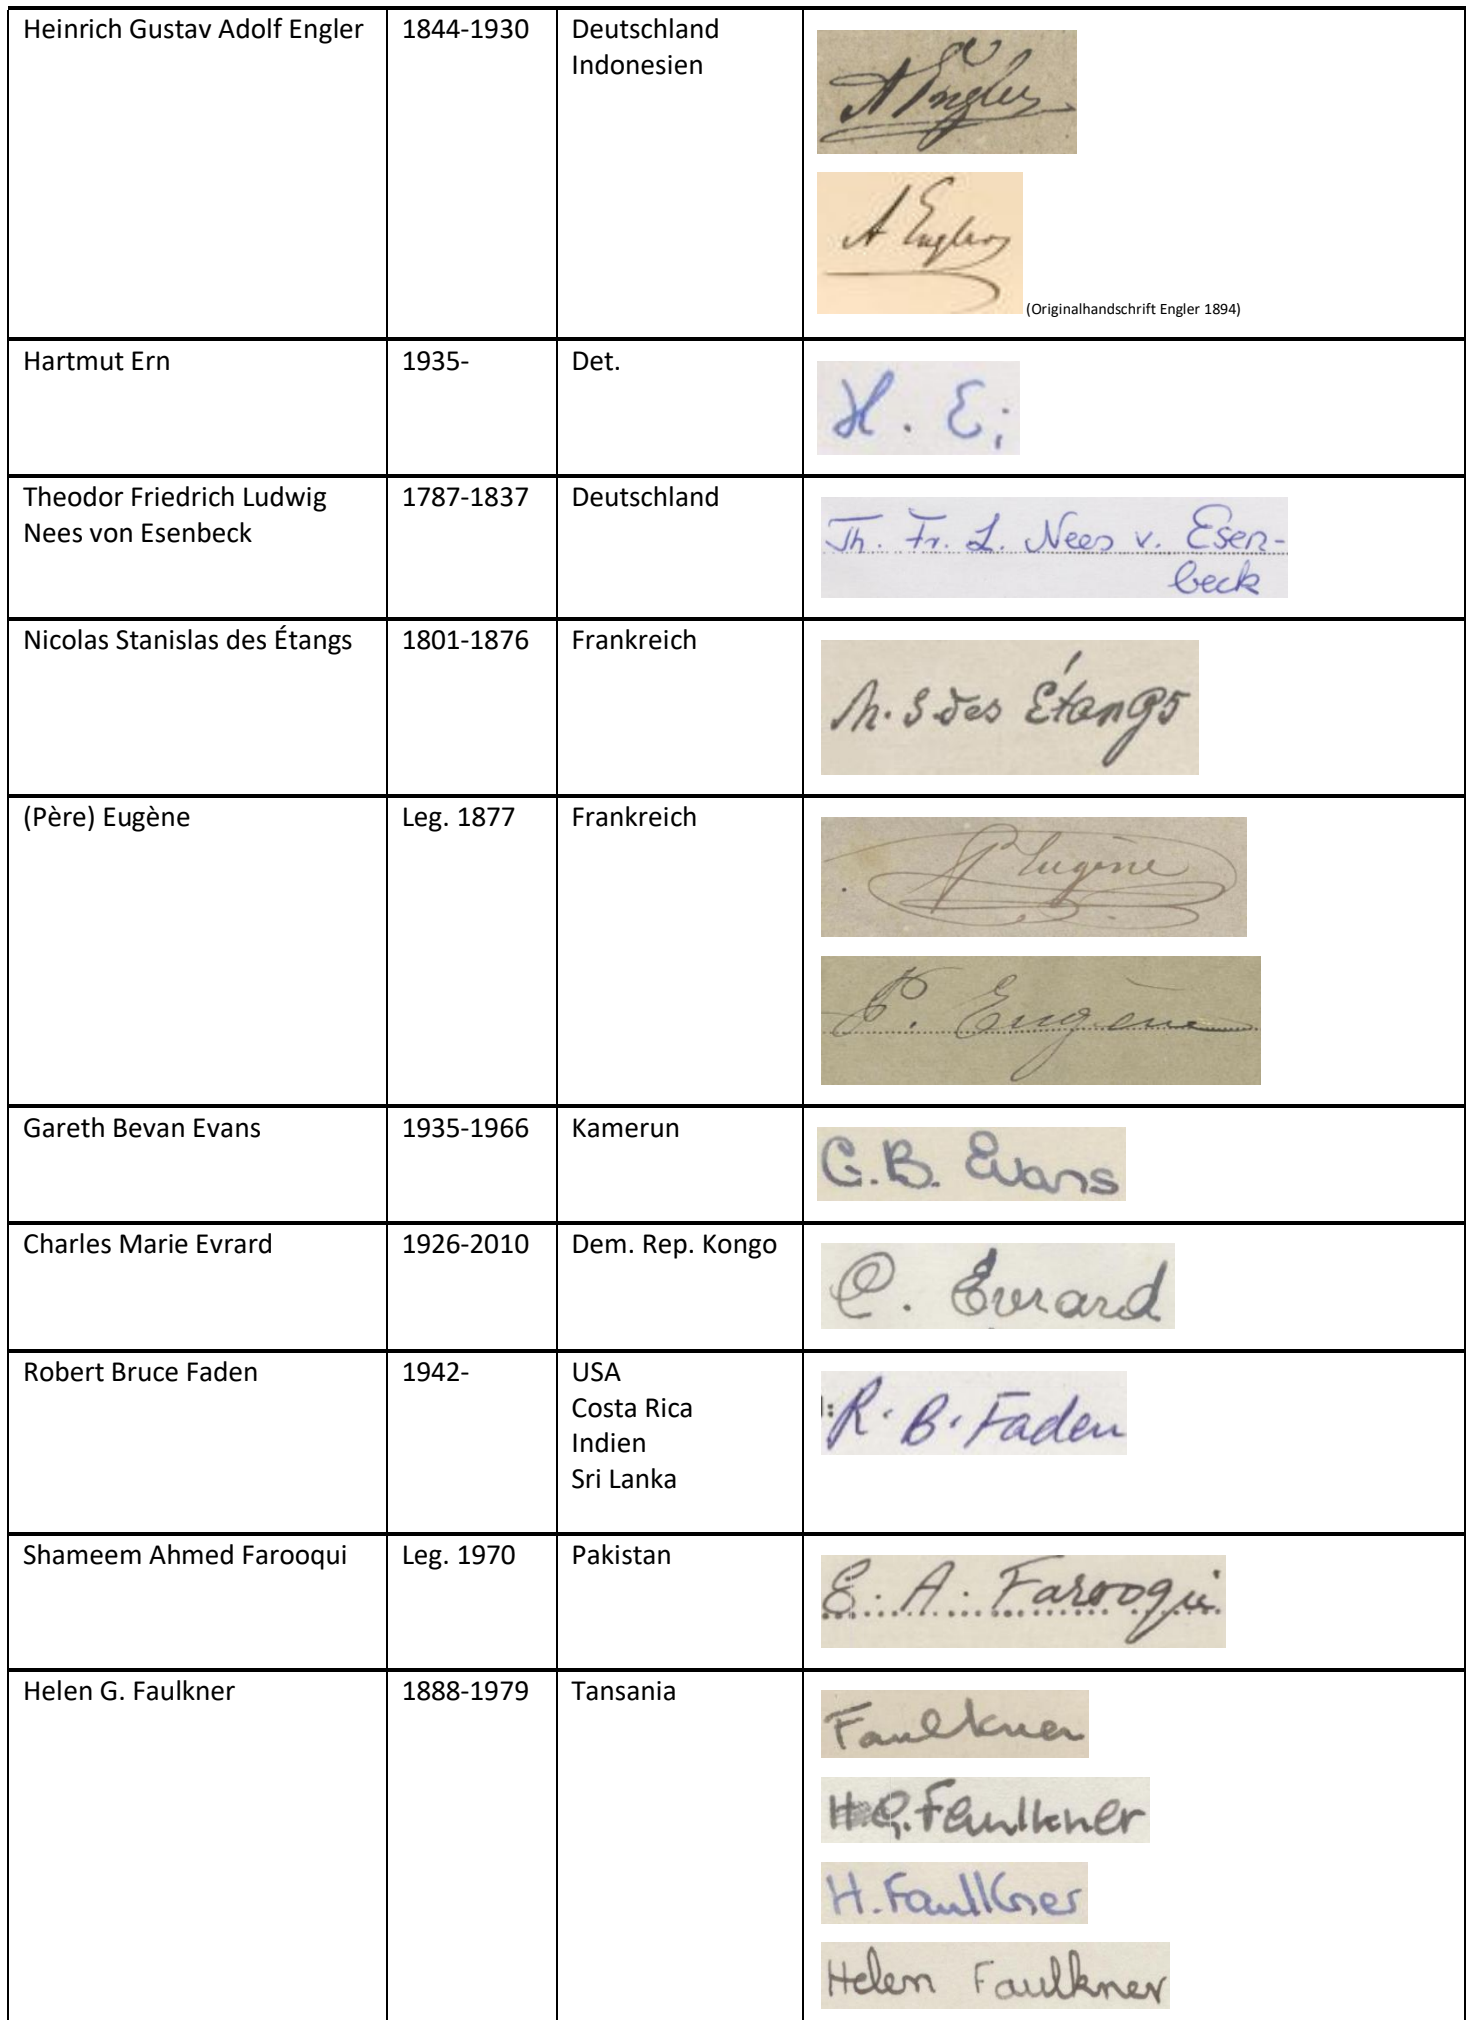 Heinrich Gustav Adolf Engler 1844-1930 Deutschland
Indonesien
A Engler
A Engler
(Originalhandschrift Engler 1894)
Hartmut Ern 1935- Det.
H. E;
Theodor Friedrich Ludwig 1787-1837 Deutschland
Nees von Esenbeck
Th. Fr. L. Nees v. Esen-
beck
Nicolas Stanislas des Étangs 1801-1876 Frankreich
N. S des Étangs
(Père) Eugène Leg. 1877 Frankreich
P Eugène
P. Eugène
Gareth Bevan Evans 1935-1966 Kamerun
G.B. Evans
Charles Marie Evrard 1926-2010 Dem. Rep. Kongo
C. Evrard
Robert Bruce Faden 1942- USA
Costa Rica
Indien
Sri Lanka
R. B. Faden
Shameem Ahmed Farooqui Leg. 1970 Pakistan
S. A. Farooqui
Helen G. Faulkner 1888-1979 Tansania
Faulkner
H.G. Faulkner
H. Faulkner
Helen Faulkner